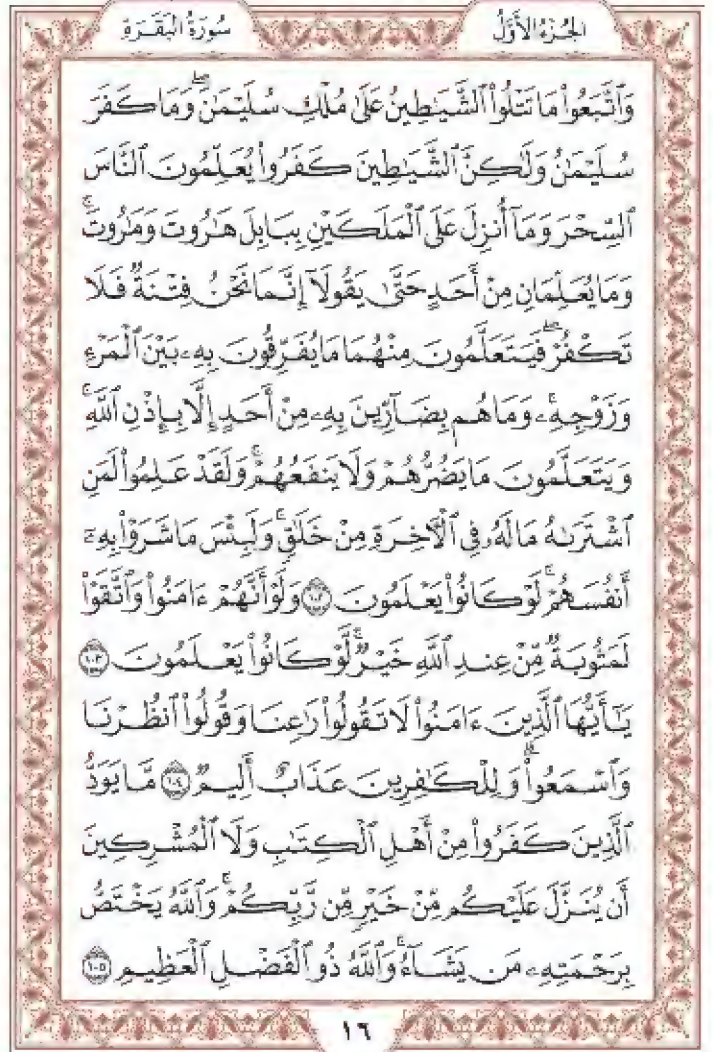 الجُزْءُ الأَوَّلُ سُورَةُ الْبَقَرَةِ
وَٱتَّبَعُوا۟ مَا تَتْلُوا۟ ٱلشَّيَـٰطِينُ عَلَىٰ مُلْكِ سُلَيْمَـٰنَ ۖ وَمَا كَفَرَ
سُلَيْمَـٰنُ وَلَـٰكِنَّ ٱلشَّيَـٰطِينَ كَفَرُوا۟ يُعَلِّمُونَ ٱلنَّاسَ
ٱلسِّحْرَ وَمَآ أُنزِلَ عَلَى ٱلْمَلَكَيْنِ بِبَابِلَ هَـٰرُوتَ وَمَـٰرُوتَ ۚ
وَمَا يُعَلِّمَانِ مِنْ أَحَدٍ حَتَّىٰ يَقُولَآ إِنَّمَا نَحْنُ فِتْنَةٌ فَلَا
تَكْفُرْ ۖ فَيَتَعَلَّمُونَ مِنْهُمَا مَا يُفَرِّقُونَ بِهِۦ بَيْنَ ٱلْمَرْءِ
وَزَوْجِهِۦ ۚ وَمَا هُم بِضَآرِّينَ بِهِۦ مِنْ أَحَدٍ إِلَّا بِإِذْنِ ٱللَّهِ ۚ
وَيَتَعَلَّمُونَ مَا يَضُرُّهُمْ وَلَا يَنفَعُهُمْ ۚ وَلَقَدْ عَلِمُوا۟ لَمَنِ
ٱشْتَرَىٰهُ مَا لَهُۥ فِى ٱلْـَٔاخِرَةِ مِنْ خَلَـٰقٍ ۚ وَلَبِئْسَ مَا شَرَوْا۟ بِهِۦٓ
أَنفُسَهُمْ ۚ لَوْ كَانُوا۟ يَعْلَمُونَ ١٠٢ وَلَوْ أَنَّهُمْ ءَامَنُوا۟ وَٱتَّقَوْا۟
لَمَثُوبَةٌ مِّنْ عِندِ ٱللَّهِ خَيْرٌ ۖ لَّوْ كَانُوا۟ يَعْلَمُونَ ١٠٣
يَـٰٓأَيُّهَا ٱلَّذِينَ ءَامَنُوا۟ لَا تَقُولُوا۟ رَٰعِنَا وَقُولُوا۟ ٱنظُرْنَا
وَٱسْمَعُوا۟ ۗ وَلِلْكَـٰفِرِينَ عَذَابٌ أَلِيمٌ ١٠٤ مَّا يَوَدُّ
ٱلَّذِينَ كَفَرُوا۟ مِنْ أَهْلِ ٱلْكِتَـٰبِ وَلَا ٱلْمُشْرِكِينَ
أَن يُنَزَّلَ عَلَيْكُم مِّنْ خَيْرٍ مِّن رَّبِّكُمْ ۗ وَٱللَّهُ يَخْتَصُّ
بِرَحْمَتِهِۦ مَن يَشَآءُ ۚ وَٱللَّهُ ذُو ٱلْفَضْلِ ٱلْعَظِيمِ ١٠٥
١٦